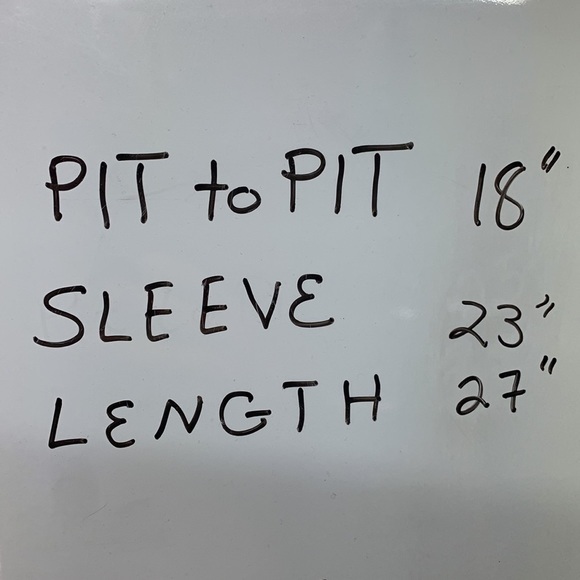 PIT to PIT 18"
SLEEVE 23"
LENGTH 27"